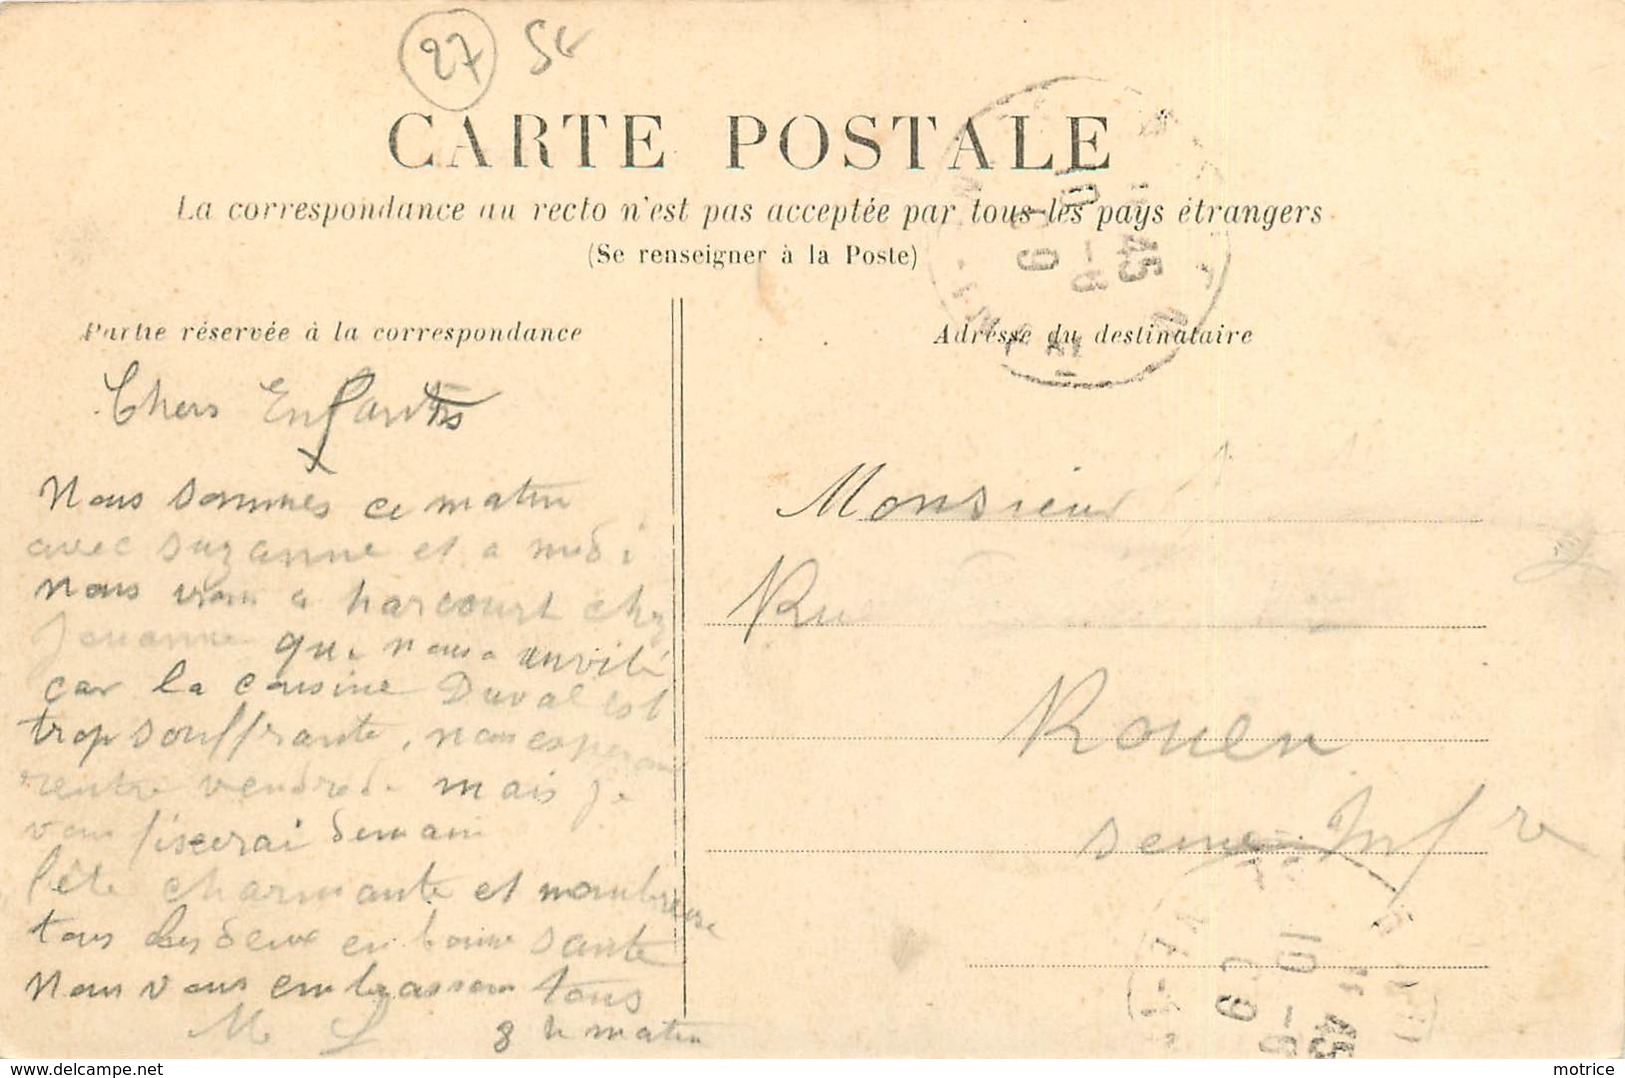 27
CARTE POSTALE
La correspondance au recto n'est pas acceptée par tous les pays étrangers
(Se renseigner à la Poste)
Partie réservée à la correspondance
Adresse du destinataire
Chers Enfants
Nous sommes ce matin
avec suzanne et a midi
nous a harcourt chez
que nous a invité
car la cousine Duval est
trop souffrante, nous esperons
rentre vendredi mais je
vous fixerai demain
fête charmante et nombreuse
tous les deux en bonne sante
Nous vous embrassons tous
M L 8 h matin
Monsieur
Rue
Rouen
seine Infre
delcampe.net
motrice